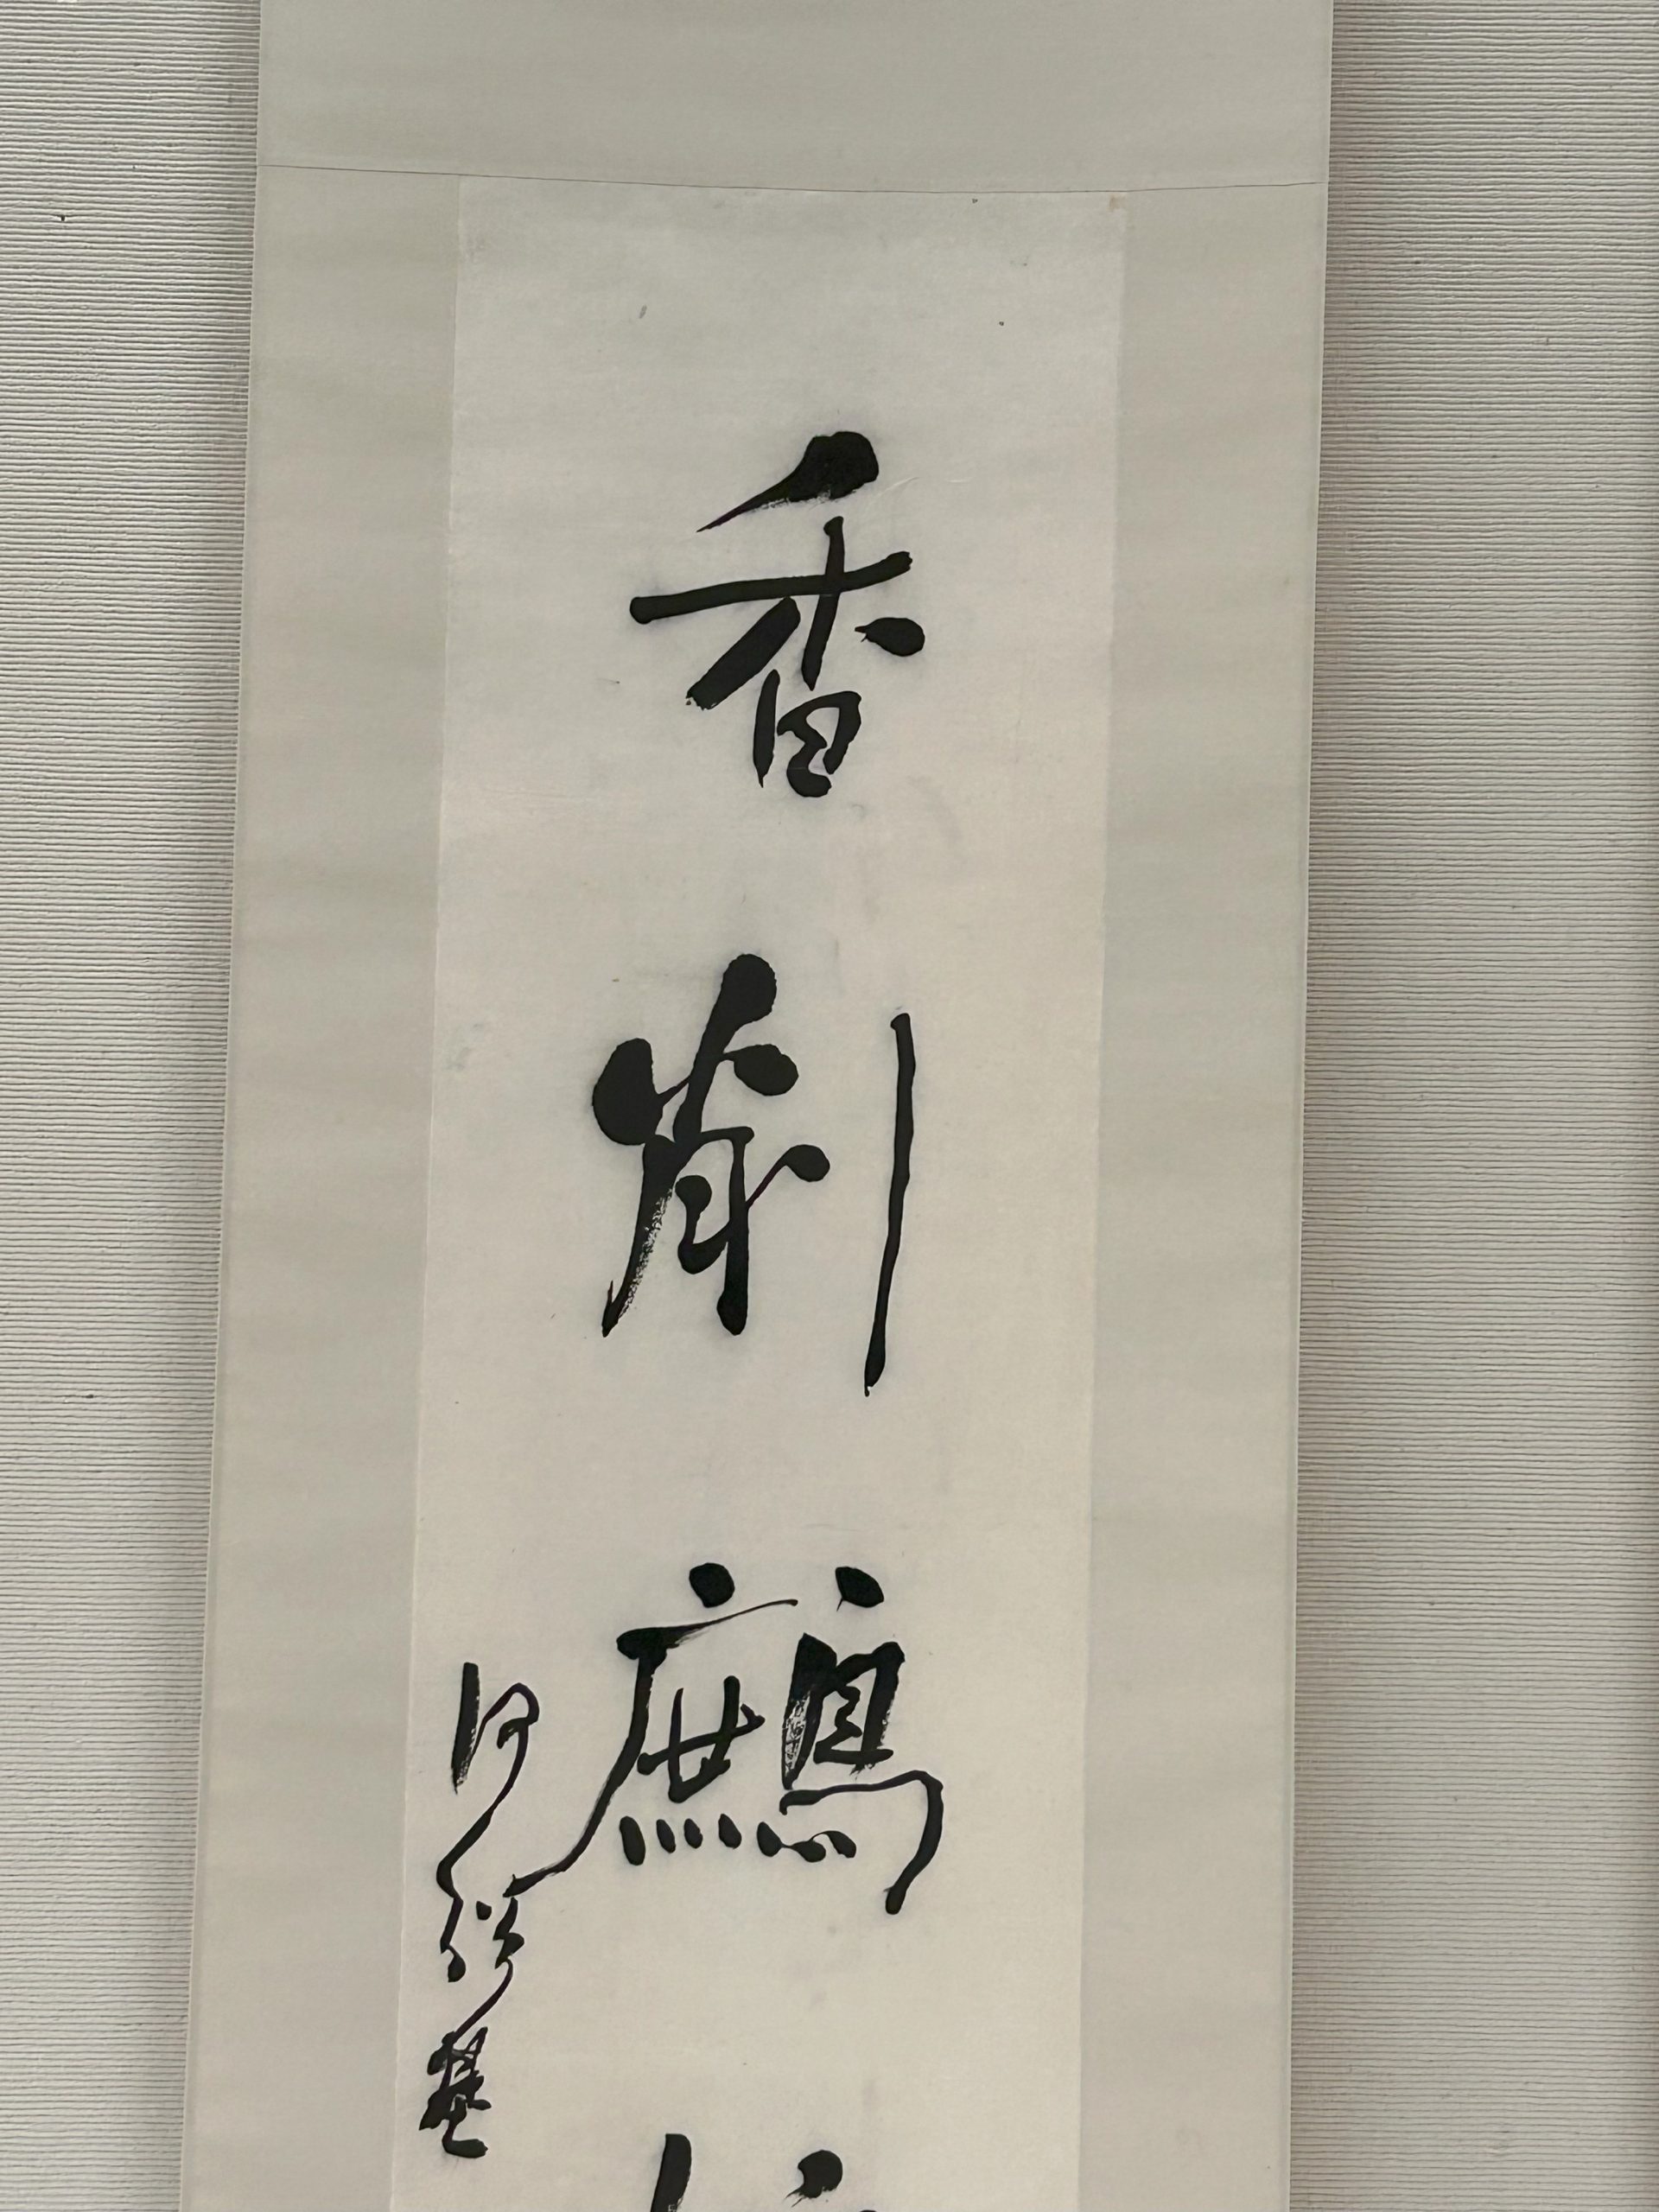 香削鷓
何紹基